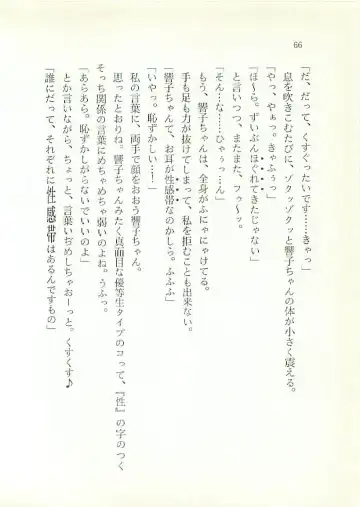 66
「だ、だって、くすぐったいです……きゃっ」
息を吹きこむたびに、ゾクッゾクッと響子ちゃんの体が小さく震える。
「やっ、やぁっ。きゃふぅっ」
「ほ〜ら。ずいぶんほぐれてきたじゃない」
と言いつつ、またまた、フゥ〜ッ。
「そん…な……ひゃぅっ…ん」
もう、響子ちゃんは、全身がふにゃにゃけてる。
手も足も力が抜けてしまって、私を拒むことも出来ない。
「響子ちゃんて、お耳が性感帯なのかしら。ふふふ」
「いやっ。恥ずかしい…！」
私の言葉に、両手で顔をおおう響子ちゃん。
思ったとおりね。響子ちゃんみたく真面目な優等生タイプのコって、『性』の字のつく
そっち関係の言葉にめちゃめちゃ弱いのよね。うふっ。
「あらあら。恥ずかしがらないでいいのよ」
とか言いながら、ちょっと、言葉いぢめしちゃおーっと。くすくす♪
「誰にだって、それぞれに性感帯はあるんですもの」